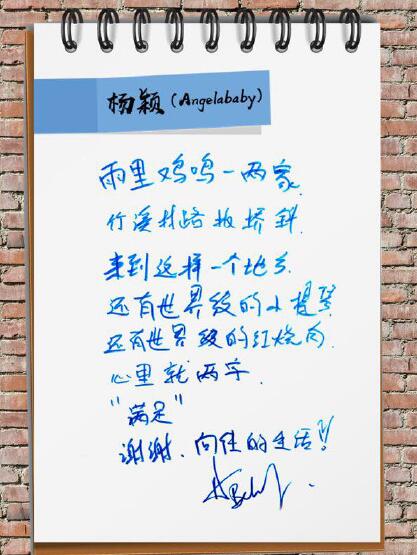 杨颖(Angelababy)
雨里鸡鸣一两家
竹溪村路板桥斜
来到这样一个地方
还有世界级的小提琴
还有世界级的红烧肉
心里就两字
"满足"
谢谢、向往的生活!!